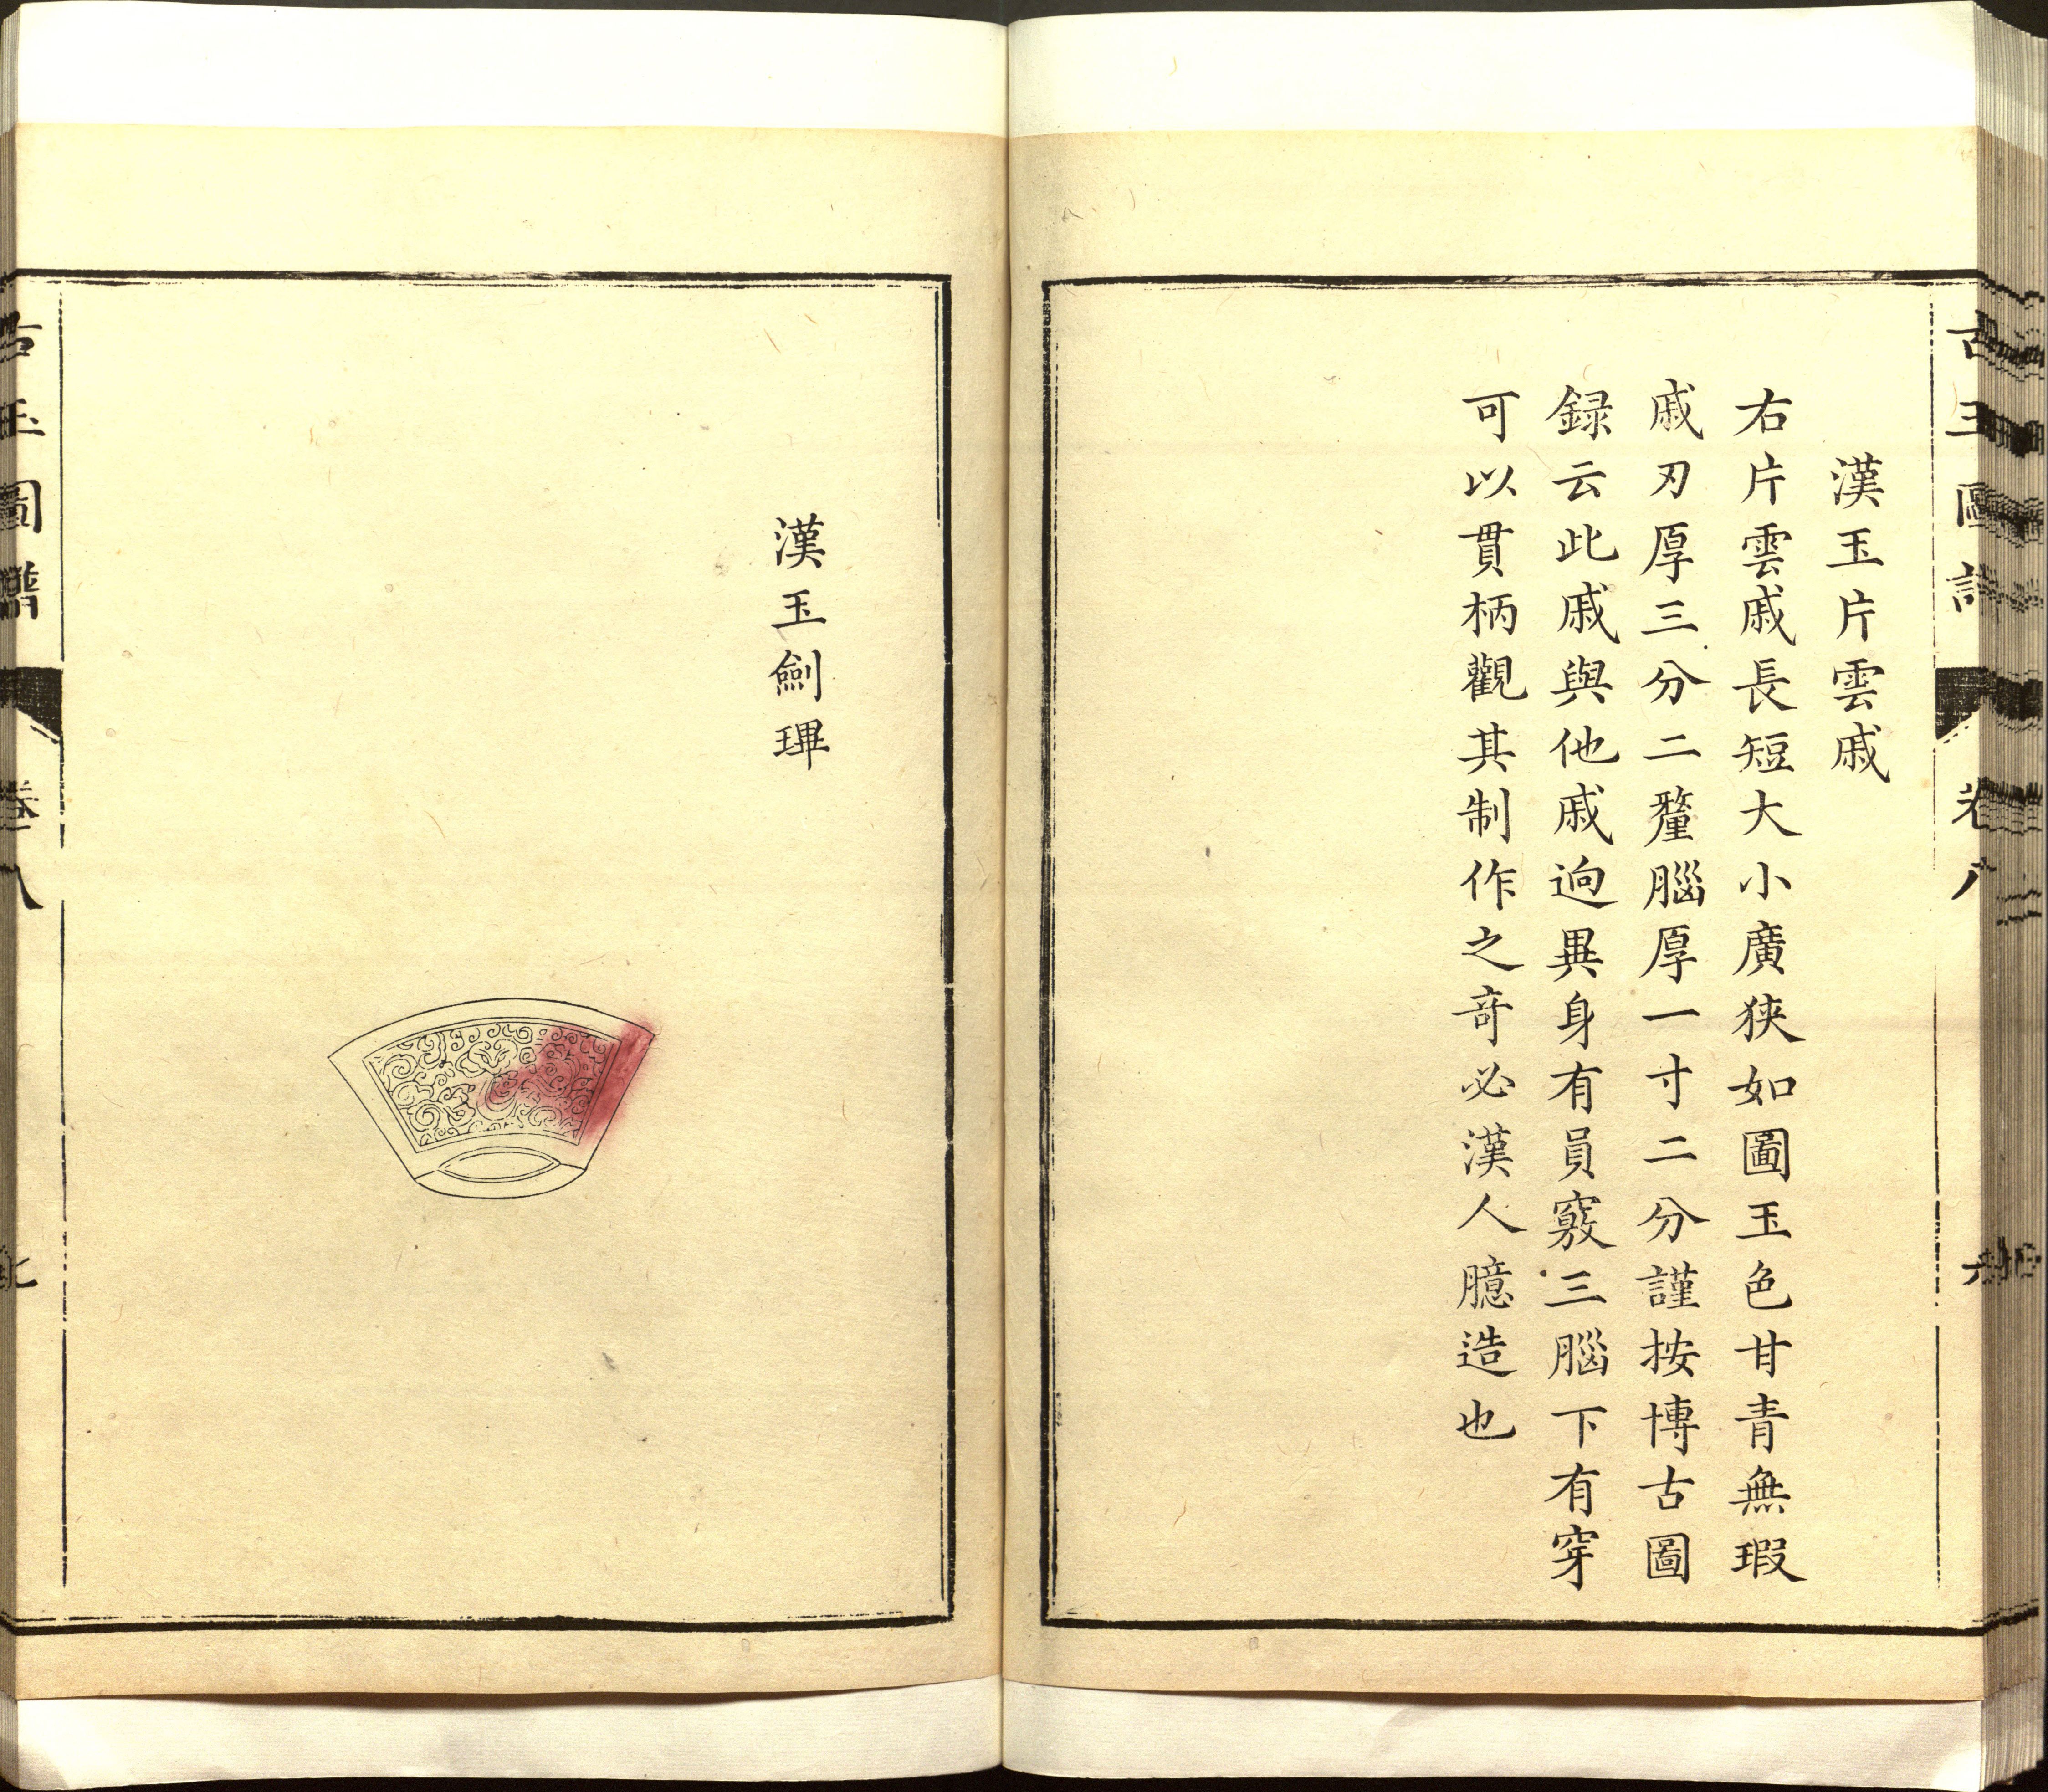 漢玉片雲戚
右片雲戚長短大小廣狹如圖玉色甘青無瑕
戚刃厚三分二釐腦厚一寸二分謹按博古圖
録云此戚與他戚逈異身有員竅三腦下有穿
可以貫柄觀其制作之竒必漢人臆造也
漢玉劍琿
古玉圖譜 卷八